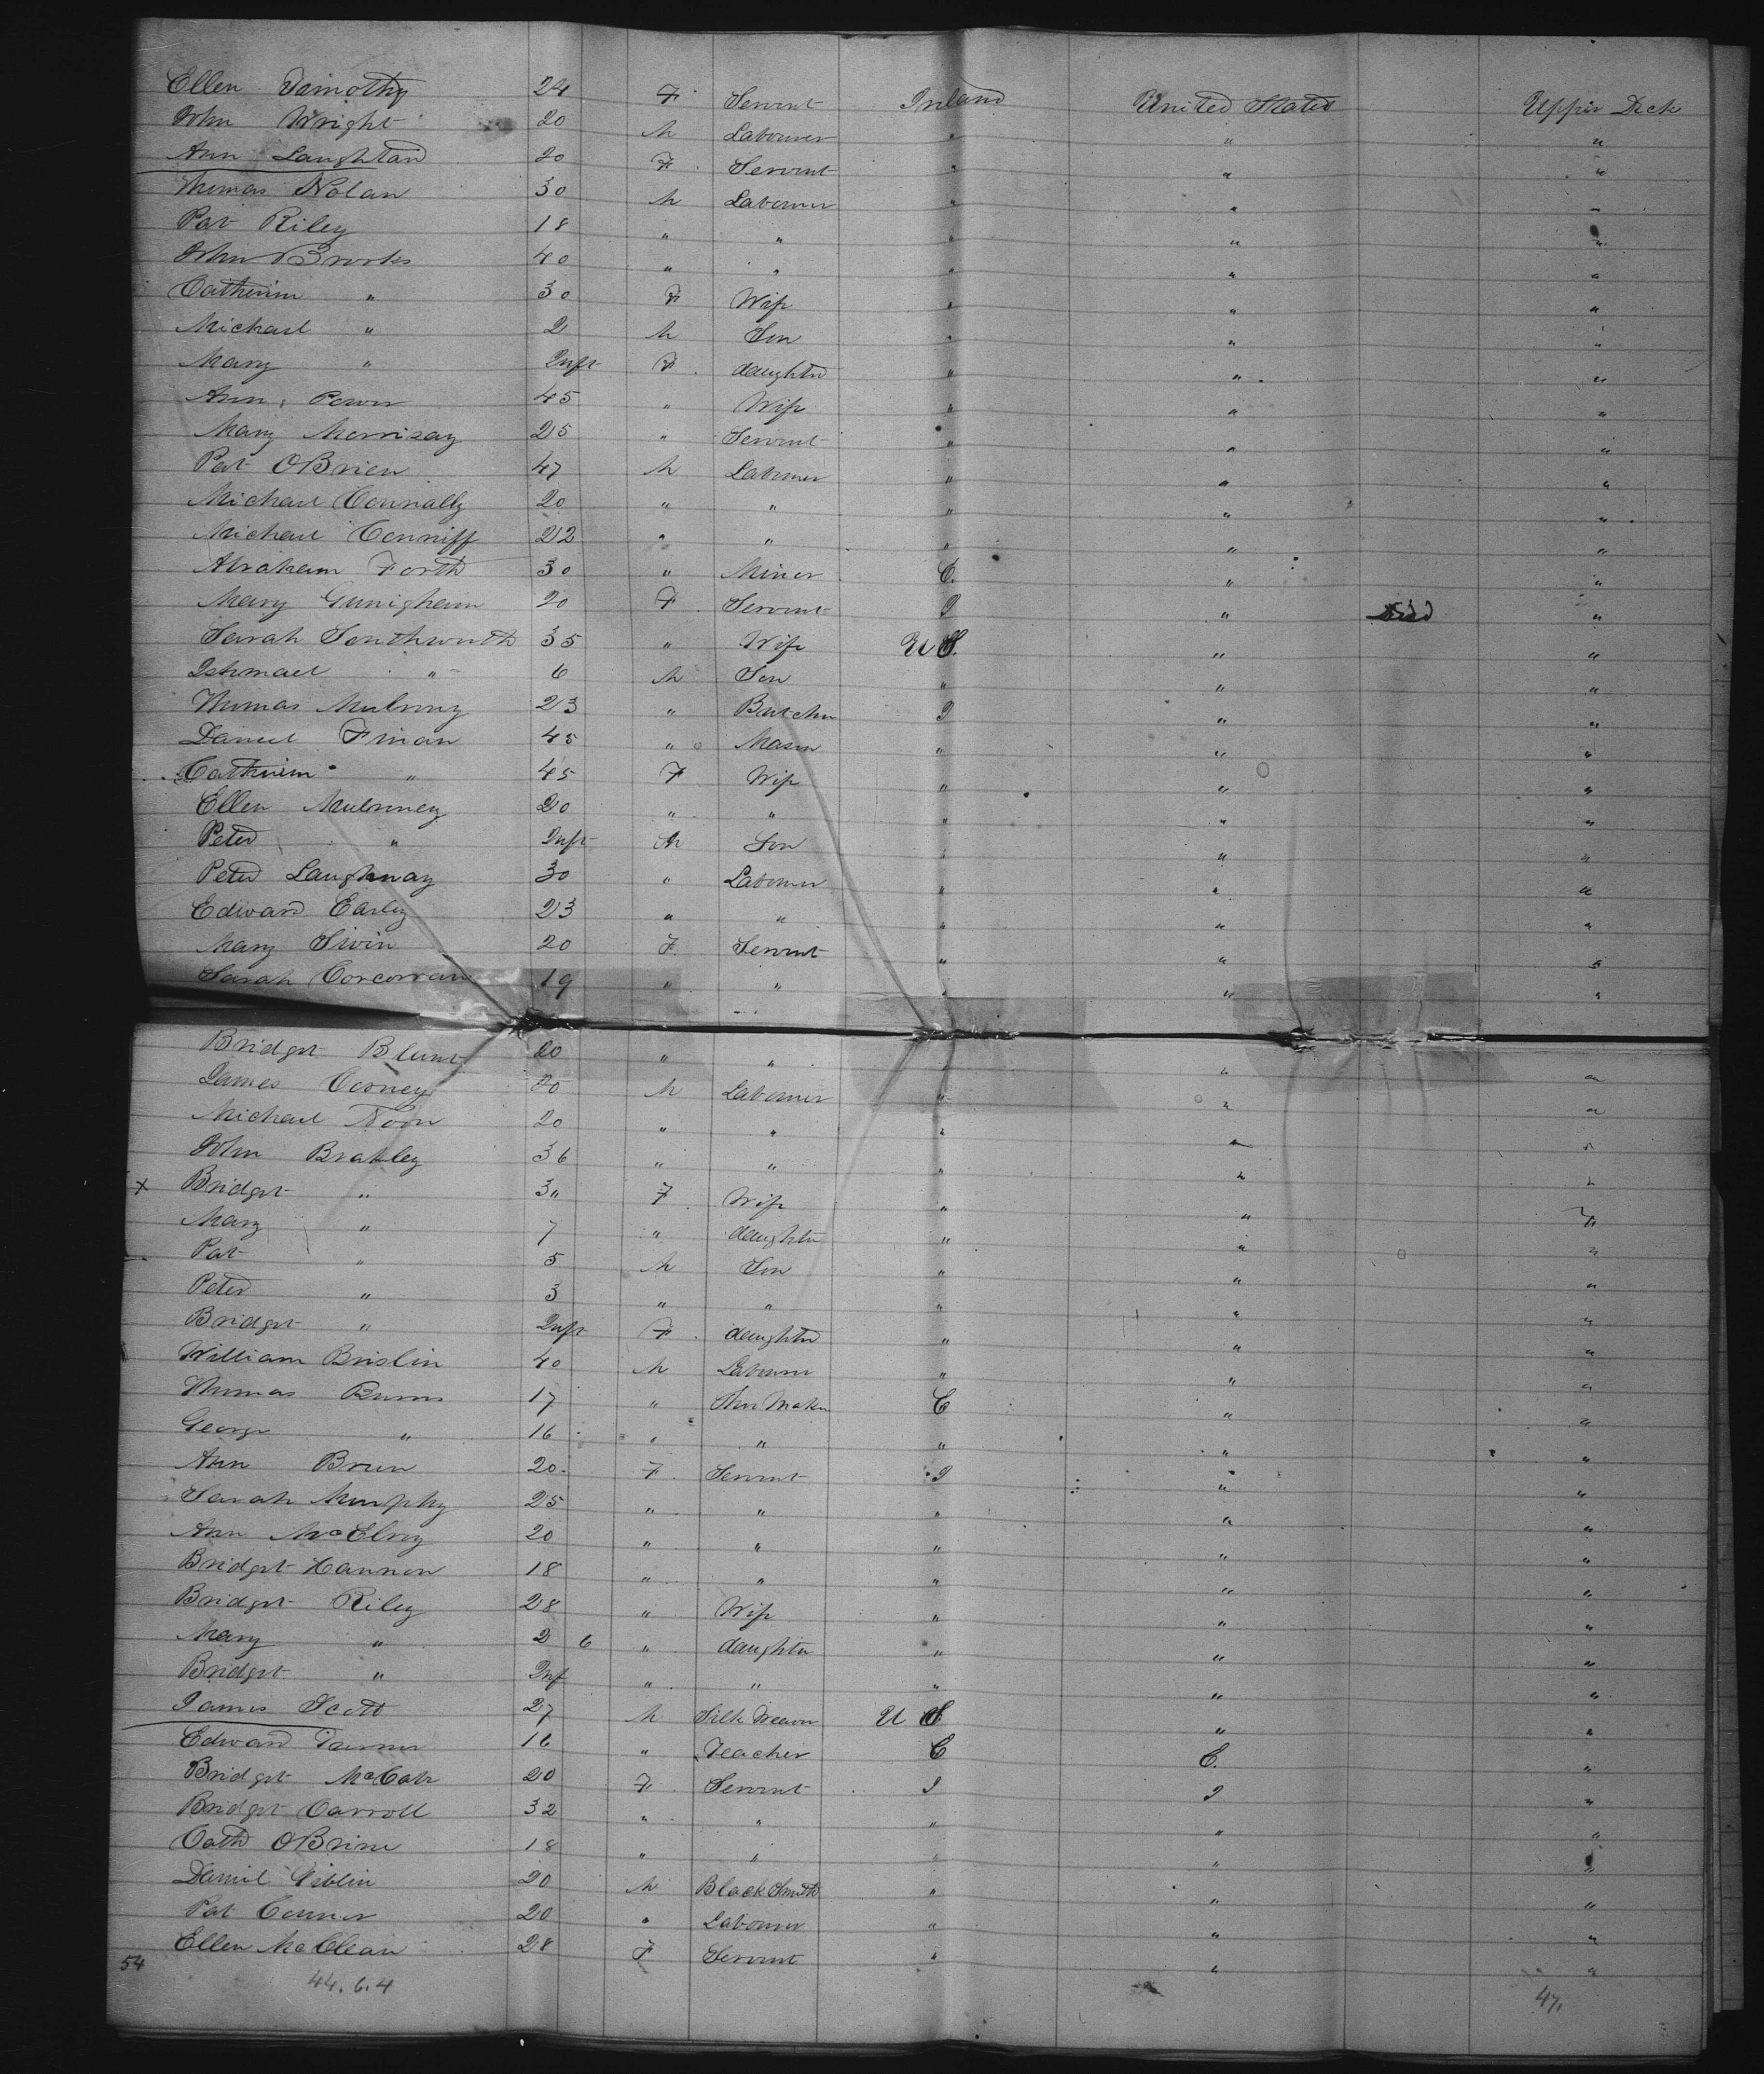 Ellen Timothy 24 F Servent Ireland United States Upper Deck
John Wright 20 M Labourer " " "
Ann Laughlan 20 F Servent " " "
Thomas Nolan 30 M Labourer " " "
Pat Riley 18 " " " " "
John Brooks 40 " " " " "
Catherine " 30 F Wife " " "
Michael " 2 M Son " " "
Mary " Inft F daughter " " "
Ann Power 45 " Wife " " "
Mary Morrisay 25 " Servent " " "
Pat OBrien 47 M Labourer " " "
Michael Connally 20 " " " " "
Michael Conniff 22 " " " " "
Abraham Forth 30 " Miner E. " "
Mary Gunigham 20 F Servent I " "
Sarah Southworth 35 " Wife U S. " "
Ishmael " 6 M Son " " "
Thomas Mulrony 23 " Butcher I " "
Daniel Finan 45 " Mason " " "
Catherine " 45 F Wife " " "
Ellen Mulnney 20 " " " " "
Peter " Inft M Son " " "
Peter Laughnay 30 " Labourer " " "
Edward Early 23 " " " " "
Mary Sivin 20 F Servent " " "
Sarah Corcorran 19 " " " " "
Bridget Blunt 20 " " " " "
James Corney 20 M Labourer " " "
Michael Noon 20 " " " " "
John Brakley 36 " " " " "
x Bridget " 3" F Wife " " "
Mary " 7 " daughter " " "
Pat " 5 M Son " " "
Peter " 3 " " " " "
Bridget " Inft F daughter " " "
William Brislin 40 M Labourer " " "
Thomas Burns 17 " Shoe Maker E " "
George " 16 " " " " "
Ann Brien 20 F Servent I " "
Sarah Murphy 25 " " " " "
Ann McElroy 20 " " " " "
Bridget Hannon 18 " " " " "
Bridget Riley 28 " Wife " " "
Mary " 2 6 " daughter " " "
Bridget " Inf " " " " "
James Scott 27 M Silk Weaver U S " "
Edward Turner 16 " Teacher E E. "
Bridget McCabe 20 F Servent I I "
Bridget Carroll 32 " " " " "
Cath OBrine 18 " " " " "
Daniel Giblin 20 M Black Smith " " "
Pat Conner 20 " Labourer " " "
Ellen McClean 28 F Servent " " "
54
44.6.4 47.